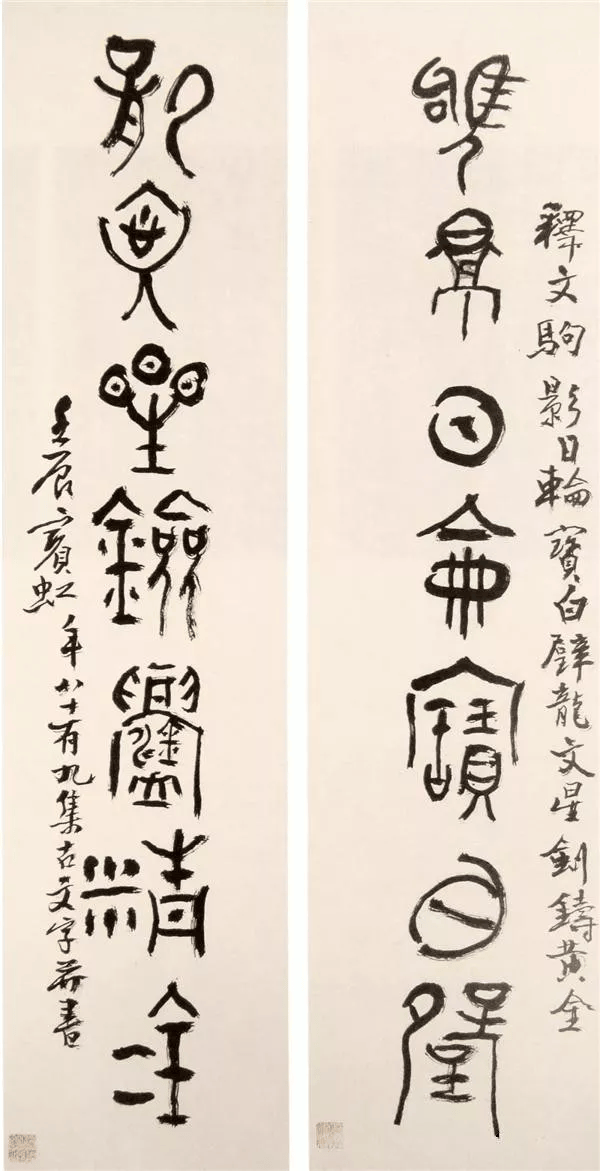 釋文駒影日輪寶白璧龍文星劍鑄黄金
駒影日輪寶白璧
龍文星劍鑄黄金
壬辰賓虹年八十有九集古文字并書